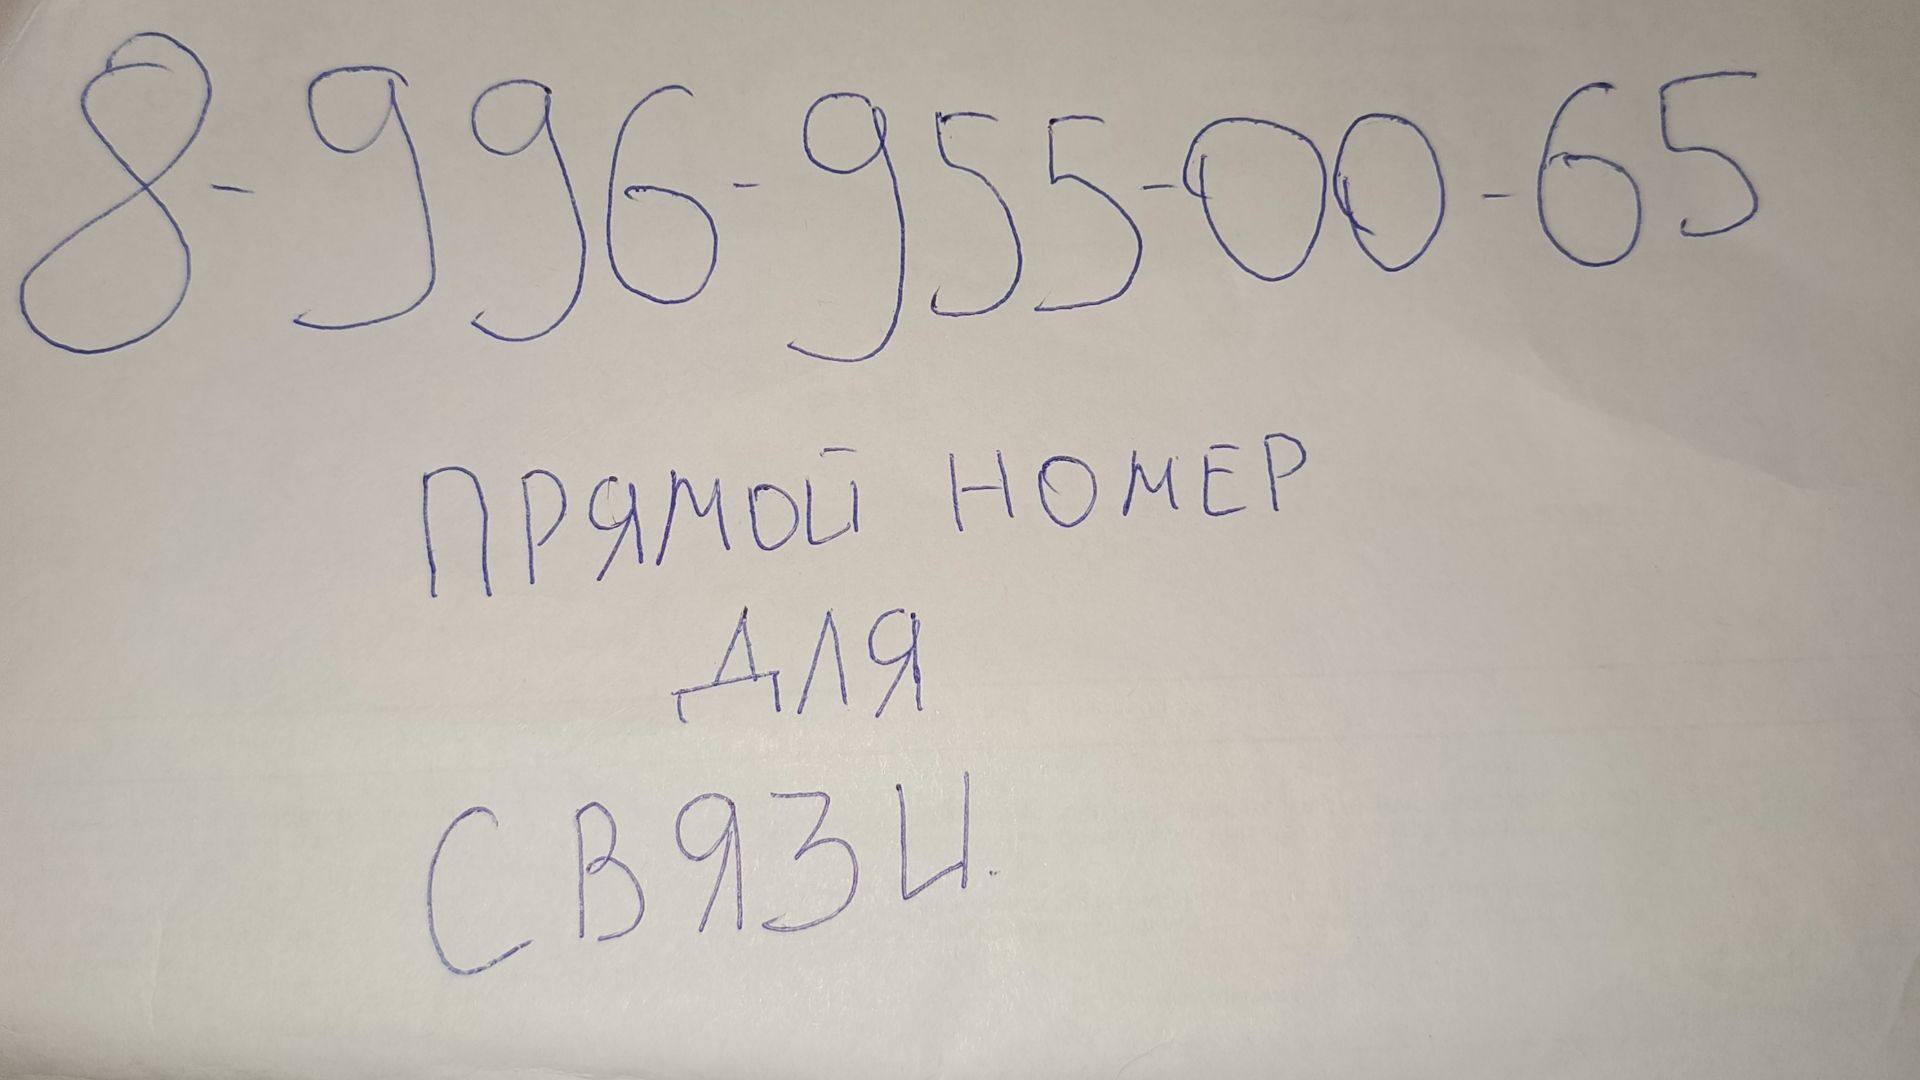 8-996-955-00-65
ПРЯМОЙ НОМЕР
ДЛЯ
СВЯЗИ.